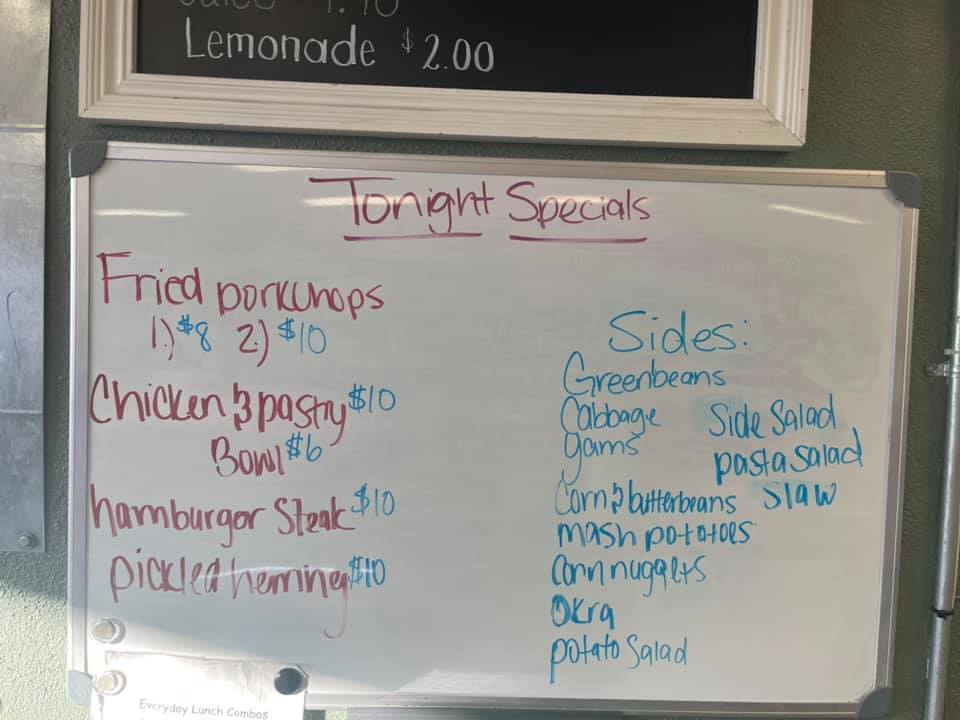 Lemonade $2.00
Tonight Specials
Fried porkchops
1.) $8 2.) $10
Chicken & pastry $10
Bowl $6
hamburgor Steak $10
pickled herring $10
Sides:
Greenbeans
Cabbage
yams
Corn & butterbeans
mash potatoes
Corn nuggets
Okra
potato Salad
Side Salad
pasta Salad
Slaw
Everyday Lunch Combos